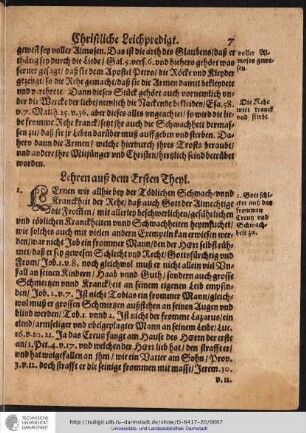 Christliche Leichpredigt. 7
gewest sey voller Almosen. Das ist die arth des Glaubens/ daß er
thätig sey durch die Liebe/ Gal. 5. vers. 6. vnd hieher gehört was
ferner gesagt/ daß sie dem Apostel Petro/ die Röcke vnd Kleyder
gezeygt/ so die Rehe gemacht/ daß sie die Armen damit bekleydete
Dann dieses Stück gehört auch vornemlich vn-
der die Wercke der liebe/ nemlich die Nackende bekleiden/ Esa. 58.
v. 7. Matth. 25. v. 36, aber dieses alles vngeachtet/ so ward die lie-
be fromme Rehe kranck/ setzt ihr auch die Schwachheit dermas-
sen zu/ daß sie jr Leben darüber muß auffgeben vnd sterben. Da-
hero dann die Armen/ welche hierdurch ihres Trosts beraubt/
vnd andere ihre Mitjünger vnd Christen/ hertzlich seind betrübet
worden.
voller Al-
mosen gewe-
sen.
Die Rehe
wirt kranck
vnd stirbt.
Lehren auß dem Ersten Theyl.
1. Lernen wir allhie bey der Tödlichen Schwach- vnnd
Kranckheit der Rehe/ daß auch Gott der Allmechtige
die Frommen/ mit allerley beschwerlichen/ gefährlichen
vnd tödlichen Kranckheiten vnnd Schwachheiten heymsuche/
wie solches auch mit vielen andern Exempeln kan erwiesen wer-
den/ war nicht Job ein frommer Mann/ den der Herr selbst rüh-
met/ daß er sey gewesen Schlecht vnd Recht/ Gottsförchtig vnd
From/ Job. 1. v. 8. noch gleichwol muß er nicht allein viel Vn-
fall an seinen Kindern/ Haab vnnd Guth/ sondern auch grosse
Schmertzen vnnd Kranckheit an seinem eigenen Leib empfin-
den/ Job. 2. v. 7. Ist nicht Tobias ein frommer Mann/ gleich-
wol muß er grossen Schmertzen außstehen an seinen Augen vnnd
blind werden/ Tob. 2. Ist nicht der fromme Lazarus/ ein
elend/ armseliger vnd vbelgeplagter Mann an seinem Leibe/ Luc.
16. v. 20. 21. Ja das Creutz fangt am Hause des Herrn der erste
an/ 1. Pet. 4. v. 17. vnd welchen der Herr lieb hat/ den strafft er/
vnd hat wolgefallen an jhm/ wie ein Vatter am Sohn/ Prov.
3. v. 12. doch strafft er die seinige frommen mit masse/ Jerem. 30.
v. 11.
1. Gott schi-
cket auch den
frommen
Creutz vnd
Schwach-
heit zu.
TECHNISCHE
UNIVERSITÄT
DARMSTADT
http://tudigit.ulb.tu-darmstadt.de/show/O-6417-20/0067
Universitäts- und Landesbibliothek Darmstadt